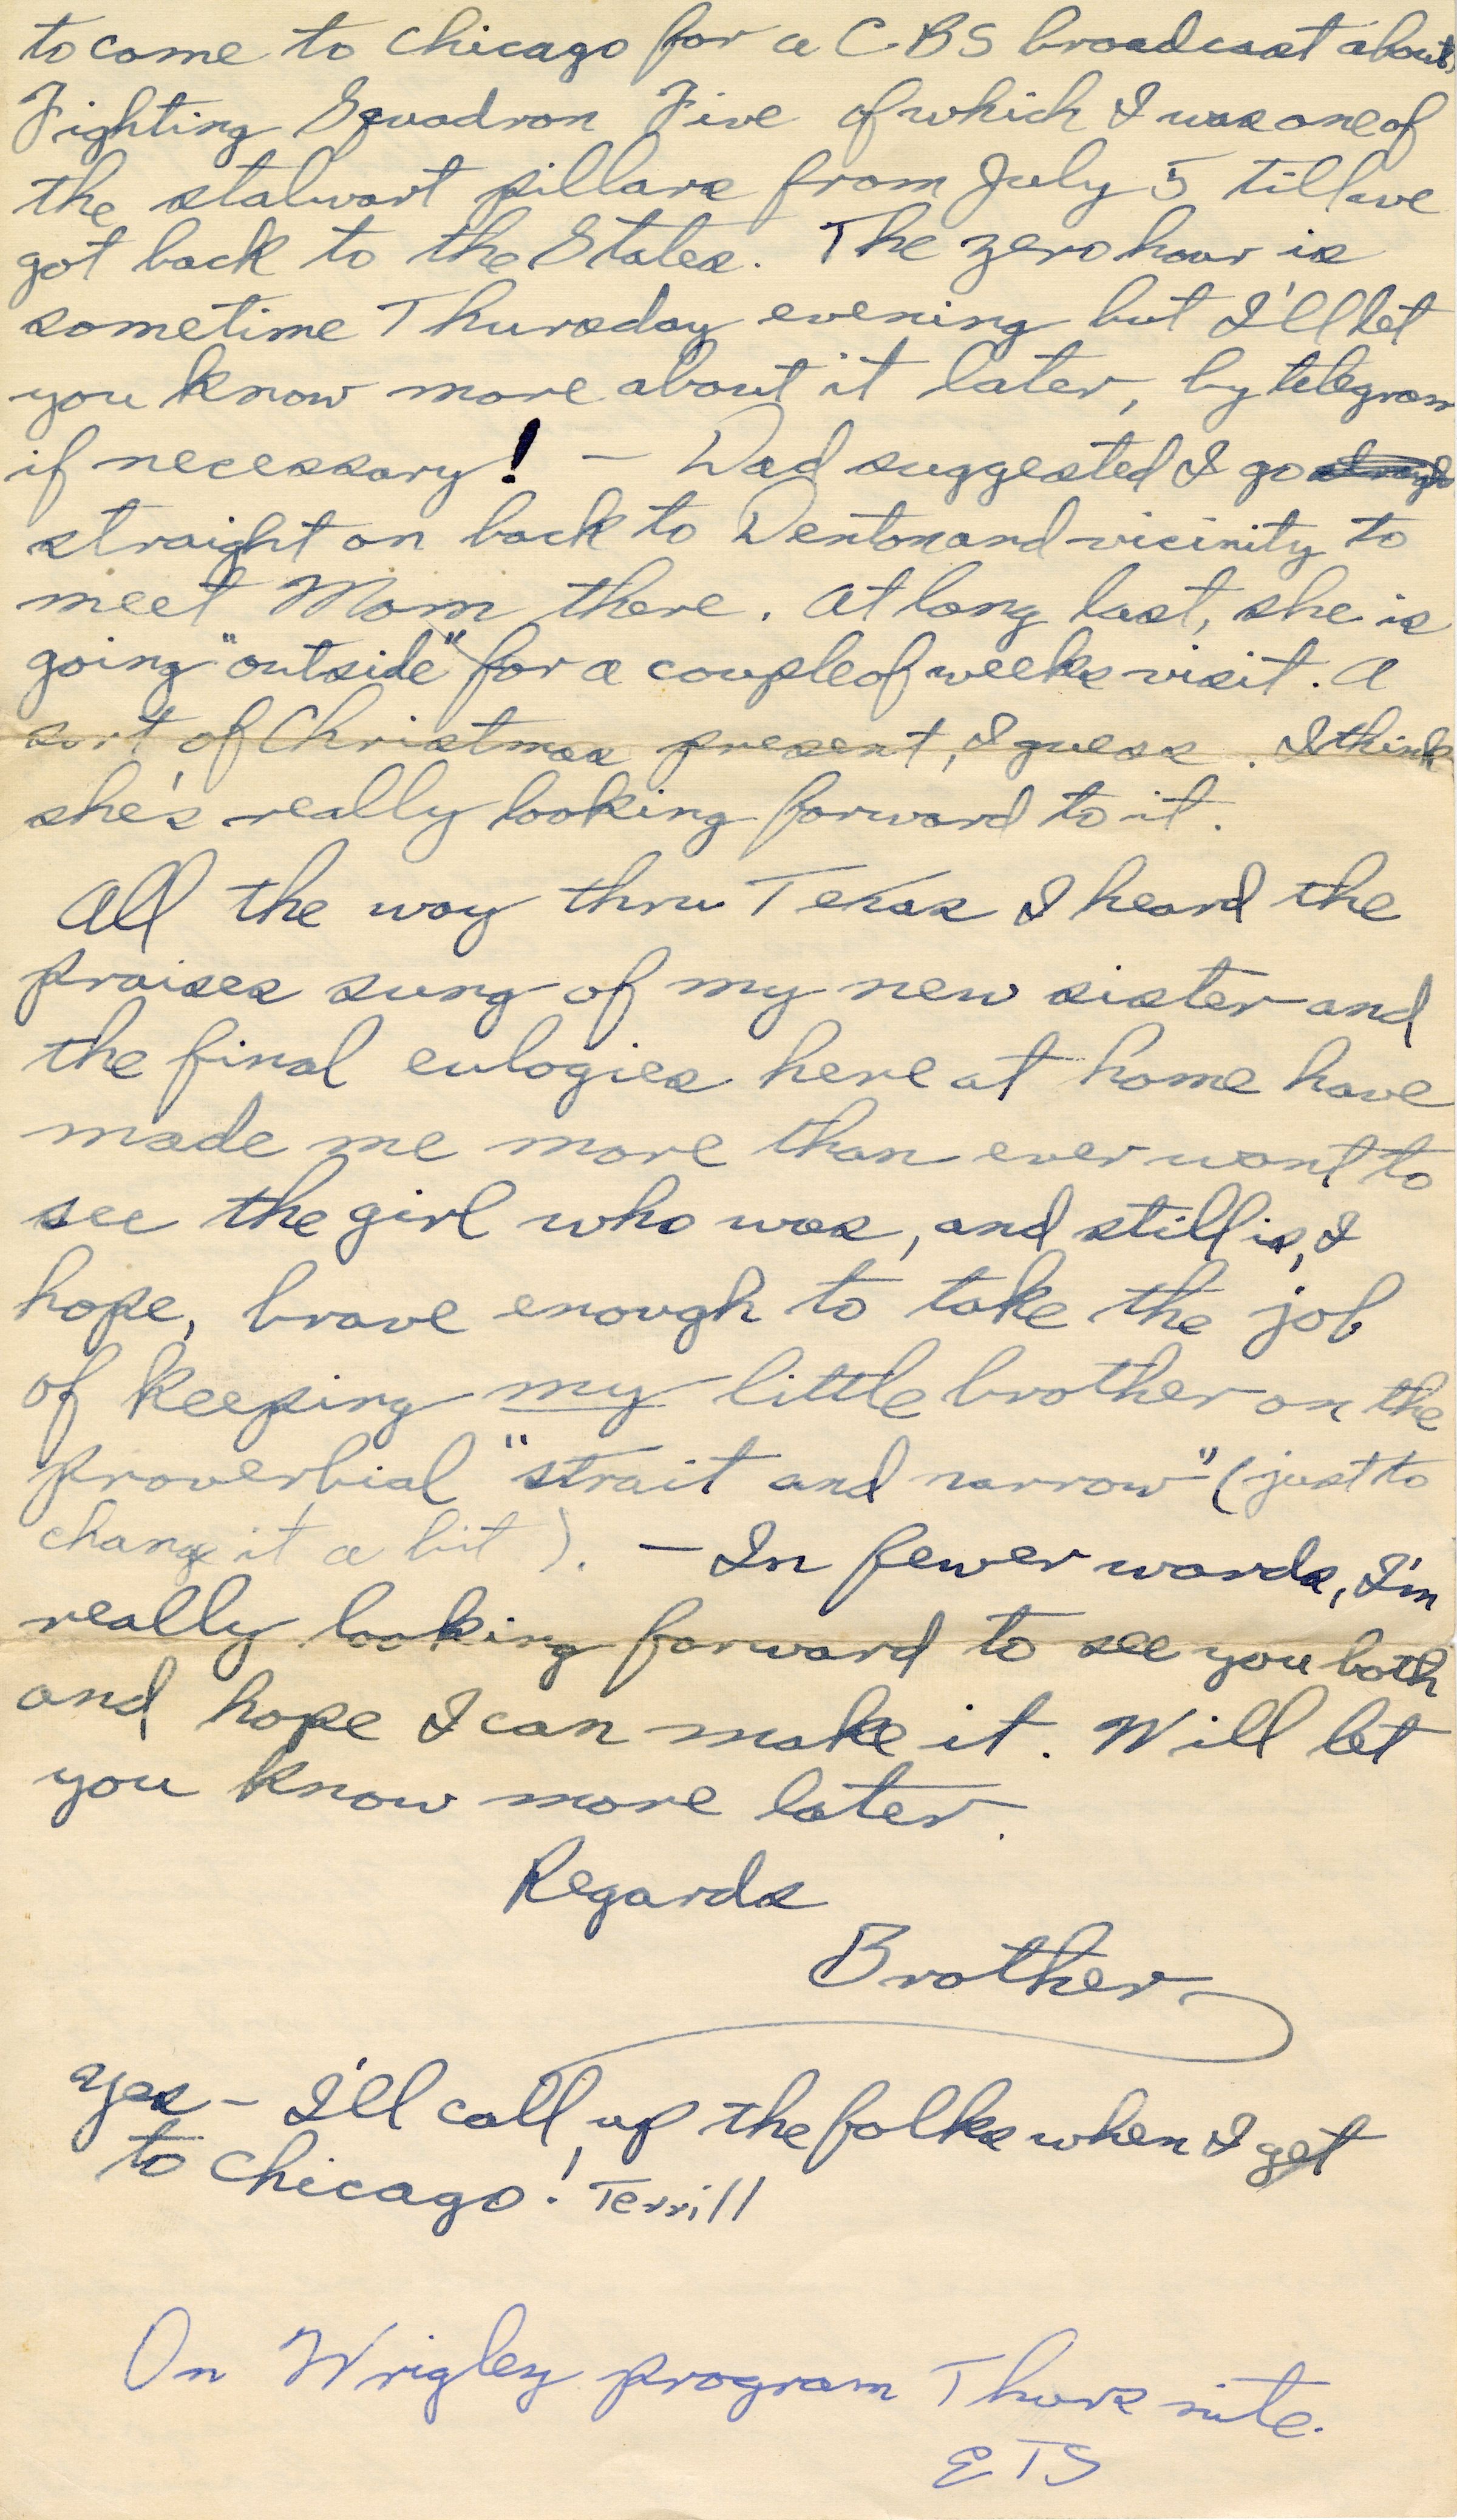 to come to Chicago for a CBS broadcast about
Fighting Squadron Five of which I was one of
the stalwart pillars from July 5 till we
got back to the States. The zero hour is
sometime Thursday evening but I'll let
you know more about it later, by telegram
if necessary! — Dad suggested I go
straight on back to Denton and vicinity to
meet Mom there. At long last, she is
going "outside" for a couple of weeks visit. A
sort of Christmas present, I guess. I think
she's really looking forward to it.
All the way thru Texas I heard the
praises sung of my new sister and
the final eulogies here at home have
made me more than ever want to
see the girl who was, and still is, I
hope, brave enough to take the job
of keeping my little brother on the
proverbial "strait and narrow" (just to
change it a bit). — In fewer words, I'm
really looking forward to see you both
and hope I can make it. Will let
you know more later.
Regards
Brother
Yes — I'll call up the folks when I get
to Chicago! Terrill
On Wrigley program Thurs nite.
ETS